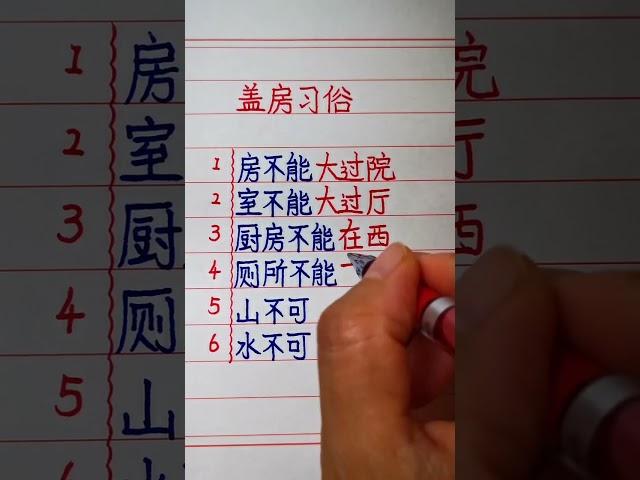 盖房习俗
1 房不能大过院
2 室不能大过厅
3 厨房不能在西
4 厕所不能
5 山不可
6 水不可